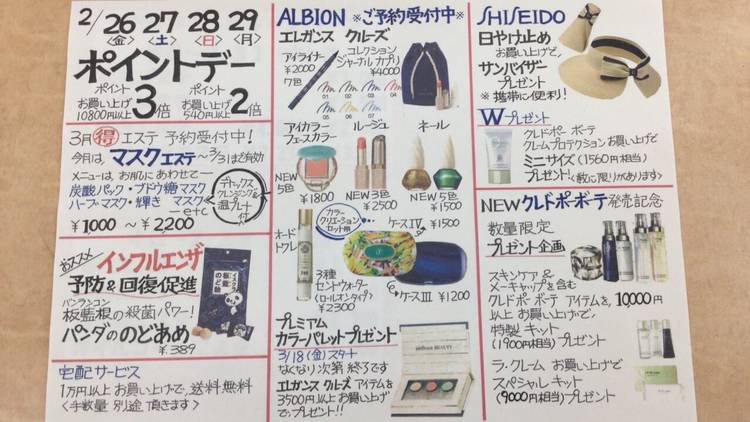 2/26 27 28 29
〈金〉〈土〉〈日〉〈月〉
ポイントデー
ポイント 3倍
お買い上げ
10800円以上
ポイント 2倍
お買い上げ
540円以上
3月 得 エステ 予約受付中！
今月は、マスクエステ 〜3/31まで有効
メニューは お肌にあわせて―
炭酸パック・ブドウ糖マスク
ハーブマスク・輝き マスク
―etc
デトックス
クレンジング&
温プレート
付
¥1000 〜 ¥2,200
おススメ
インフルエンザ
予防&回復促進
バンランコン
板藍根の殺菌パワー！
パンダののどあめ
¥389
宅配サービス
1万円以上お買い上げで、送料無料
〈手数量 別途 頂きます〉
ALBION ※ご予約受付中※
エレガンス クルーズ
アイライナー
¥2000
7色
コレクション
ジャーナル カプリ
¥4000
01 02 03 04
05 06 07
アイカラー
フェースカラー
NEW
5色
¥1800
ルージュ
NEW3色
¥2500
ネール
NEW5色
¥1500
カラー
クリエーション
セット用
オード
トワレ
3種
セントウォーター
(ロールオンタイプ)
¥2300
ケースIV ¥1500
ケースIII ¥1200
プレミアム
カラーパレットプレゼント
3/18(金)スタート
なくなり次第 終了です
エレガンス クルーズ アイテムを
3500円以上お買い上げ
で、プレゼント!!
SHISEIDO
日やけ止め
お買い上げで、
サンバイザー
プレゼント
※ 携帯に便利！
Wプレゼント
クレドポー ボーテ
クレームプロテクション お買い上げで
ミニサイズ (1560円相当)
プレゼント！(数に限りがあります)
NEWクレドポーボーテ発売記念
数量限定
プレゼント企画
スキンケア&
メーキャップを含む
クレドポー ボーテ アイテムを、10,000円
以上お買い上げで、
特製 キット
(1900円相当)プレゼント
ラ・クレーム お買い上げで
スペシャル キット
(9000円相当)プレゼント